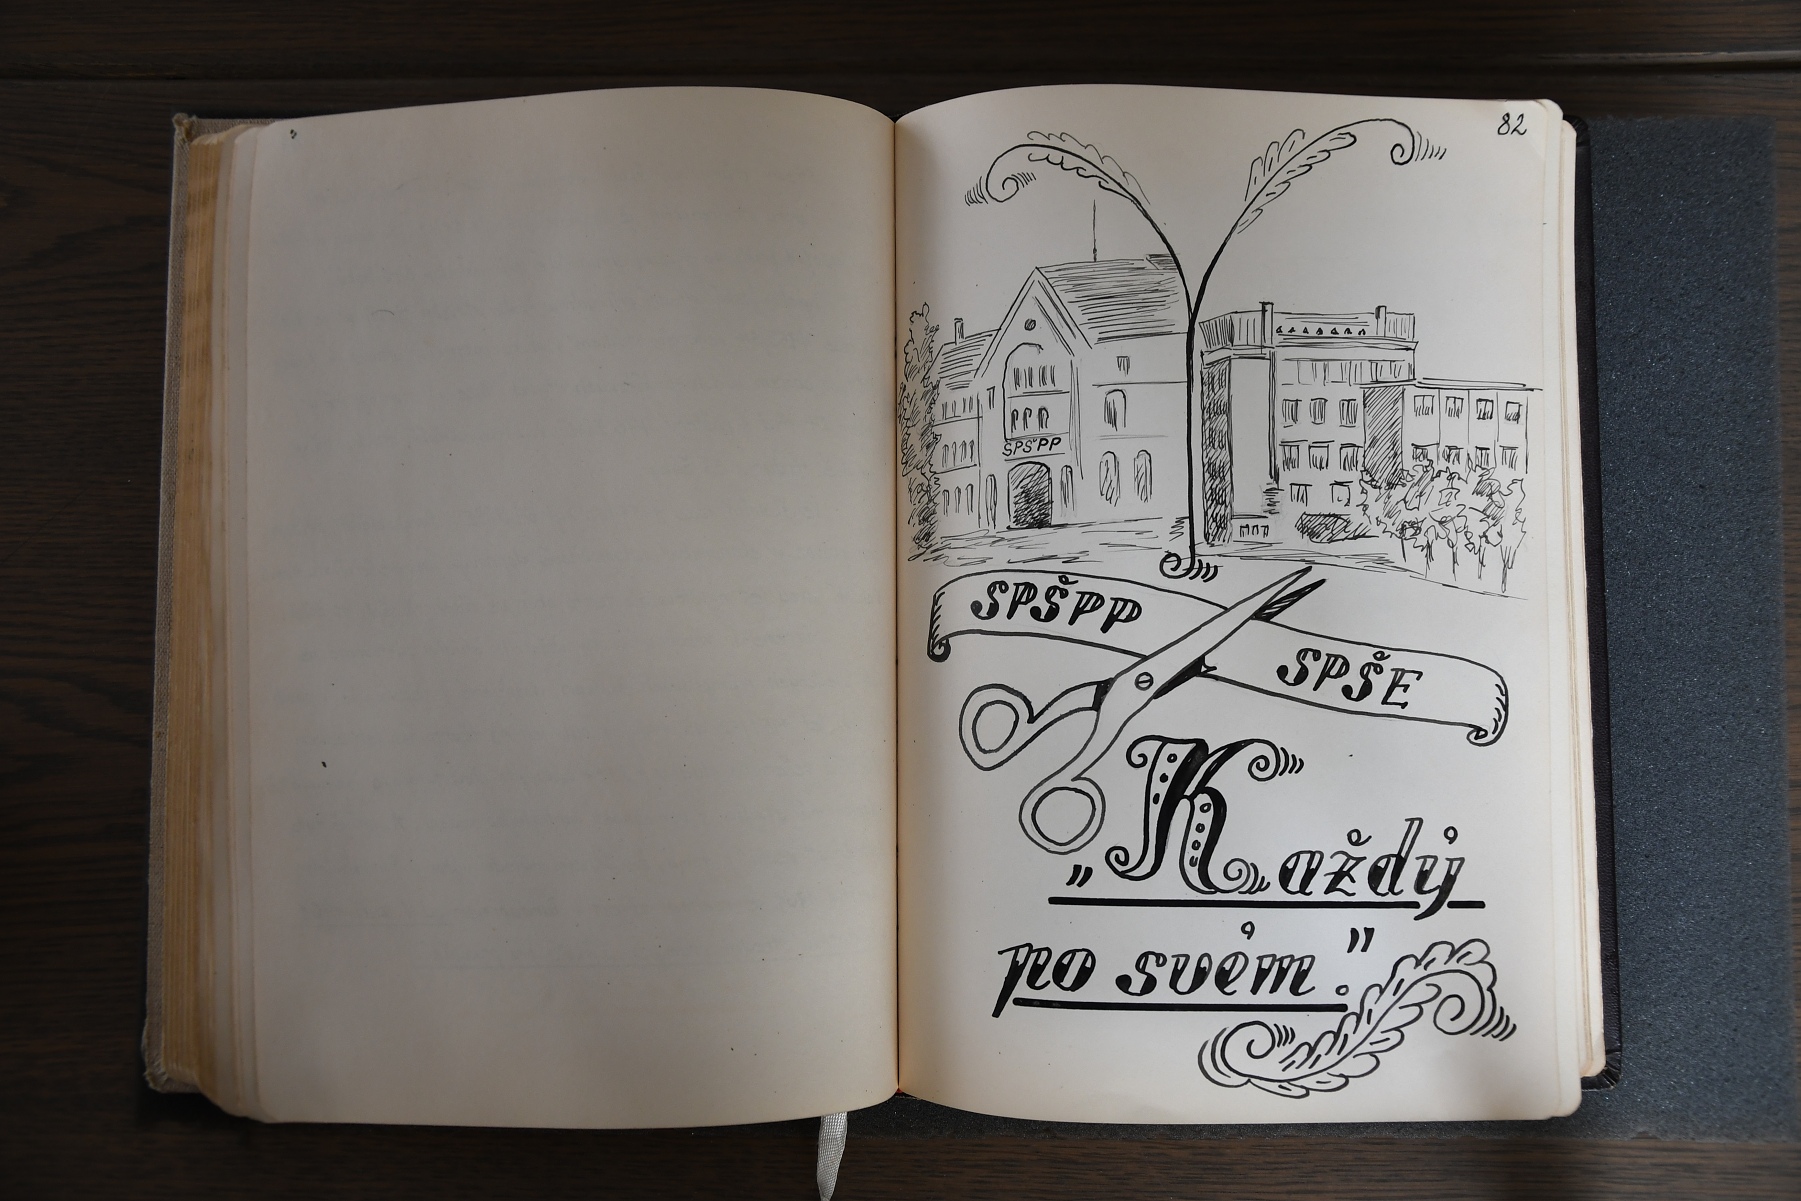 82
SPŠPP
SPŠPP
SPŠE
„Každý
po svém."